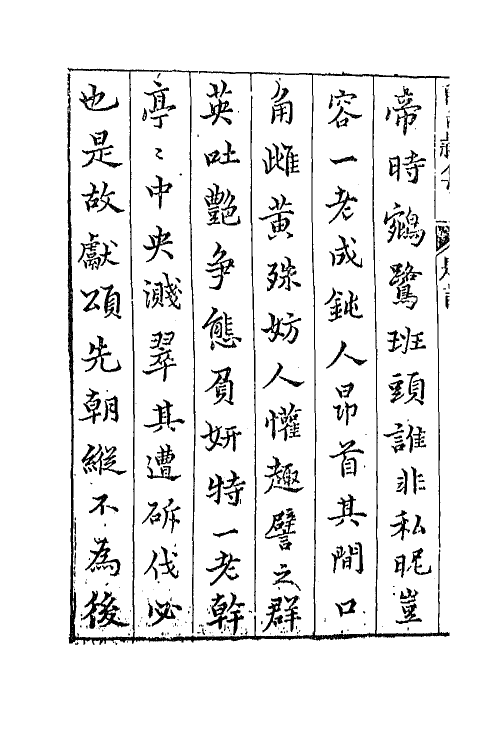 帝時鵷鷺班頭誰非私昵豈
容一老成鈍人昂首其間口
角雌黃殊妨人懽趣譬之群
英吐艷爭態負妍特一老幹
亭〻中央濺翠其遭斫伐必
也是故獻頌先朝縱不為後